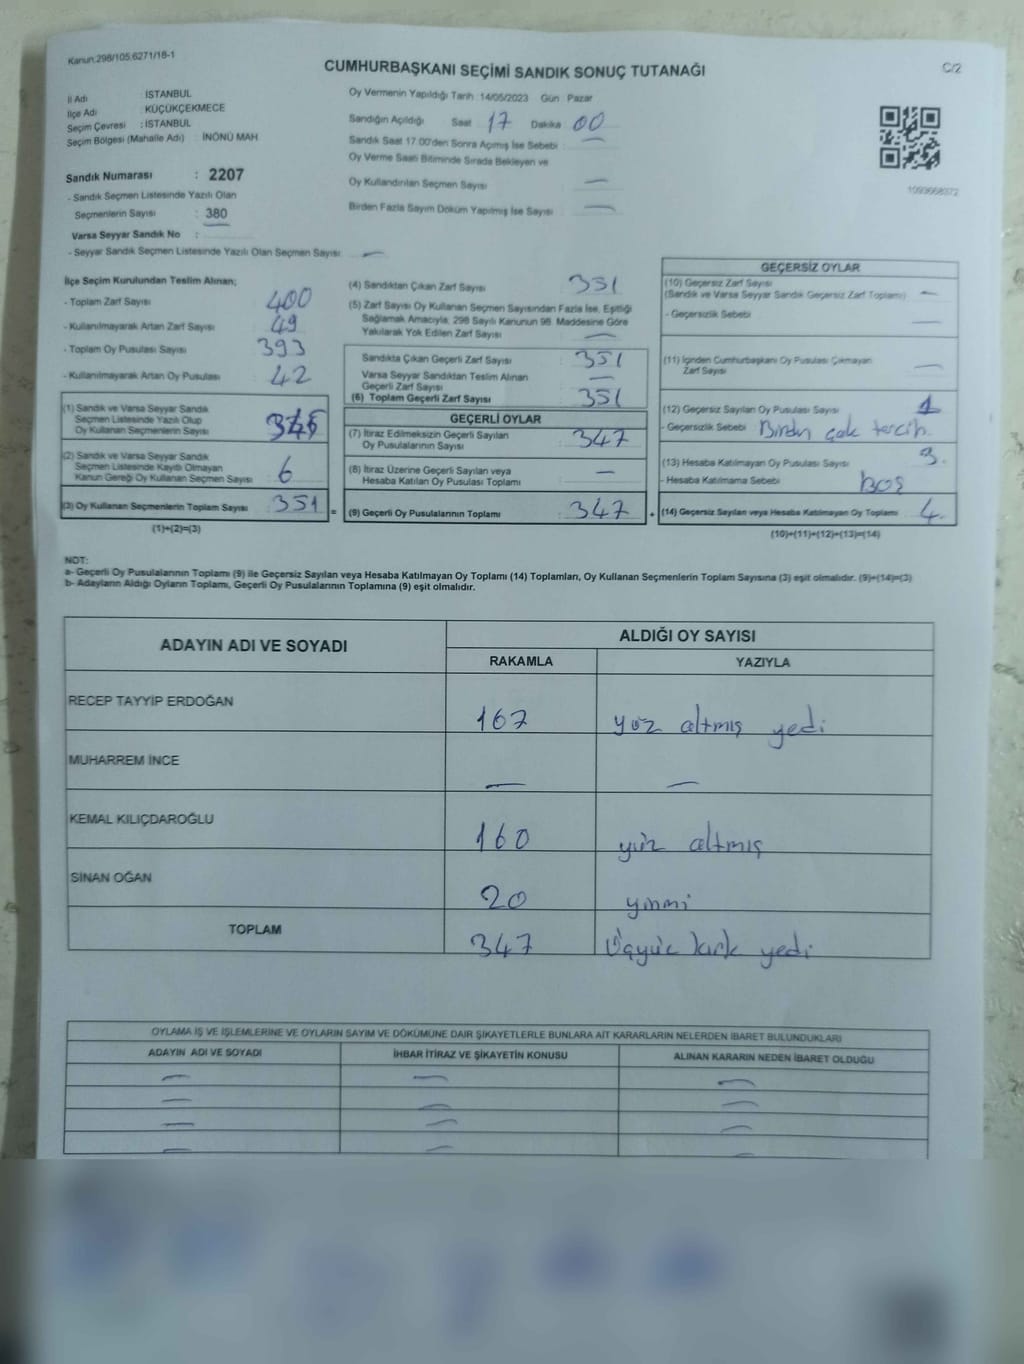 Kanun:298/105,6271/18-1
CUMHURBAŞKANI SEÇİMİ SANDIK SONUÇ TUTANAĞI
C/2
İl Adı İSTANBUL
İlçe Adı : KÜÇÜKÇEKMECE
Seçim Çevresi : İSTANBUL
Seçim Bölgesi (Mahalle Adı) : İNÖNÜ MAH
Sandık Numarası : 2207
- Sandık Seçmen Listesinde Yazılı Olan
Seçmenlerin Sayısı : 380
Varsa Seyyar Sandık No :
- Seyyar Sandık Seçmen Listesinde Yazılı Olan Seçmen Sayısı: —
Oy Vermenin Yapıldığı Tarih :14/05/2023 Gün : Pazar
Sandığın Açıldığı Saat 17 Dakika 00
Sandık Saat 17:00'den Sonra Açmış İse Sebebi : —
Oy Verme Saati Bitiminde Sırada Bekleyen ve
Oy Kullandırılan Seçmen Sayısı —
Birden Fazla Sayım Döküm Yapılmış İse Sayısı —
1093668372
İlçe Seçim Kurulundan Teslim Alınan;
- Toplam Zarf Sayısı 400
- Kullanılmayarak Artan Zarf Sayısı 49
- Toplam Oy Pusulası Sayısı 393
- Kullanılmayarak Artan Oy Pusulası 42
(1) Sandık ve Varsa Seyyar Sandık
Seçmen Listesinde Yazılı Olup
Oy Kullanan Seçmenlerin Sayısı 345
(2) Sandık ve Varsa Seyyar Sandık
Seçmen Listesinde Kayıtlı Olmayan
Kanun Gereği Oy Kullanan Seçmen Sayısı : 6
(3) Oy Kullanan Seçmenlerin Toplam Sayısı : 351
(1)+(2)=(3)
(4) Sandıktan Çıkan Zarf Sayısı 351
(5) Zarf Sayısı Oy Kullanan Seçmen Sayısından Fazla İse, Eşitliği
Sağlamak Amacıyla, 298 Sayılı Kanunun 98. Maddesine Göre
Yakılarak Yok Edilen Zarf Sayısı : —
Sandıkta Çıkan Geçerli Zarf Sayısı 351
Varsa Seyyar Sandıktan Teslim Alınan
Geçerli Zarf Sayısı —
(6) Toplam Geçerli Zarf Sayısı 351
GEÇERLİ OYLAR
(7) İtiraz Edilmeksizin Geçerli Sayılan
Oy Pusulalarının Sayısı 347
(8) İtiraz Üzerine Geçerli Sayılan veya
Hesaba Katılan Oy Pusulası Toplamı —
= (9) Geçerli Oy Pusulalarının Toplamı 347
GEÇERSİZ OYLAR
(10) Geçersiz Zarf Sayısı
(Sandık ve Varsa Seyyar Sandık Geçersiz Zarf Toplamı) : —
- Geçersizlik Sebebi —
(11) İçinden Cumhurbaşkanı Oy Pusulası Çıkmayan
Zarf Sayısı —
(12) Geçersiz Sayılan Oy Pusulası Sayısı : 1
- Geçersizlik Sebebi Birden çok tercih.
(13) Hesaba Katılmayan Oy Pusulası Sayısı 3.
- Hesaba Katılmama Sebebi boş
+ (14) Geçersiz Sayılan veya Hesaba Katılmayan Oy Toplamı 4.
(10)+(11)+(12)+(13)=(14)
NOT:
a- Geçerli Oy Pusulalarının Toplamı (9) ile Geçersiz Sayılan veya Hesaba Katılmayan Oy Toplamı (14) Toplamları, Oy Kullanan Seçmenlerin Toplam Sayısına (3) eşit olmalıdır. (9)+(14)=(3)
b- Adayların Aldığı Oyların Toplamı, Geçerli Oy Pusulalarının Toplamına (9) eşit olmalıdır.
ADAYIN ADI VE SOYADI ALDIĞI OY SAYISI
RAKAMLA YAZIYLA
RECEP TAYYİP ERDOĞAN 167 yüz altmış yedi
MUHARREM İNCE — —
KEMAL KILIÇDAROĞLU 160 yüz altmış
SİNAN OĞAN 20 yirmi
TOPLAM 347 Üçyüz kırk yedi
OYLAMA İŞ VE İŞLEMLERİNE VE OYLARIN SAYIM VE DÖKÜMÜNE DAİR ŞİKAYETLERLE BUNLARA AİT KARARLARIN NELERDEN İBARET BULUNDUKLARI
ADAYIN ADI VE SOYADI İHBAR İTİRAZ VE ŞİKAYETİN KONUSU ALINAN KARARIN NEDEN İBARET OLDUĞU
— — —
— — —
— — —
— — —